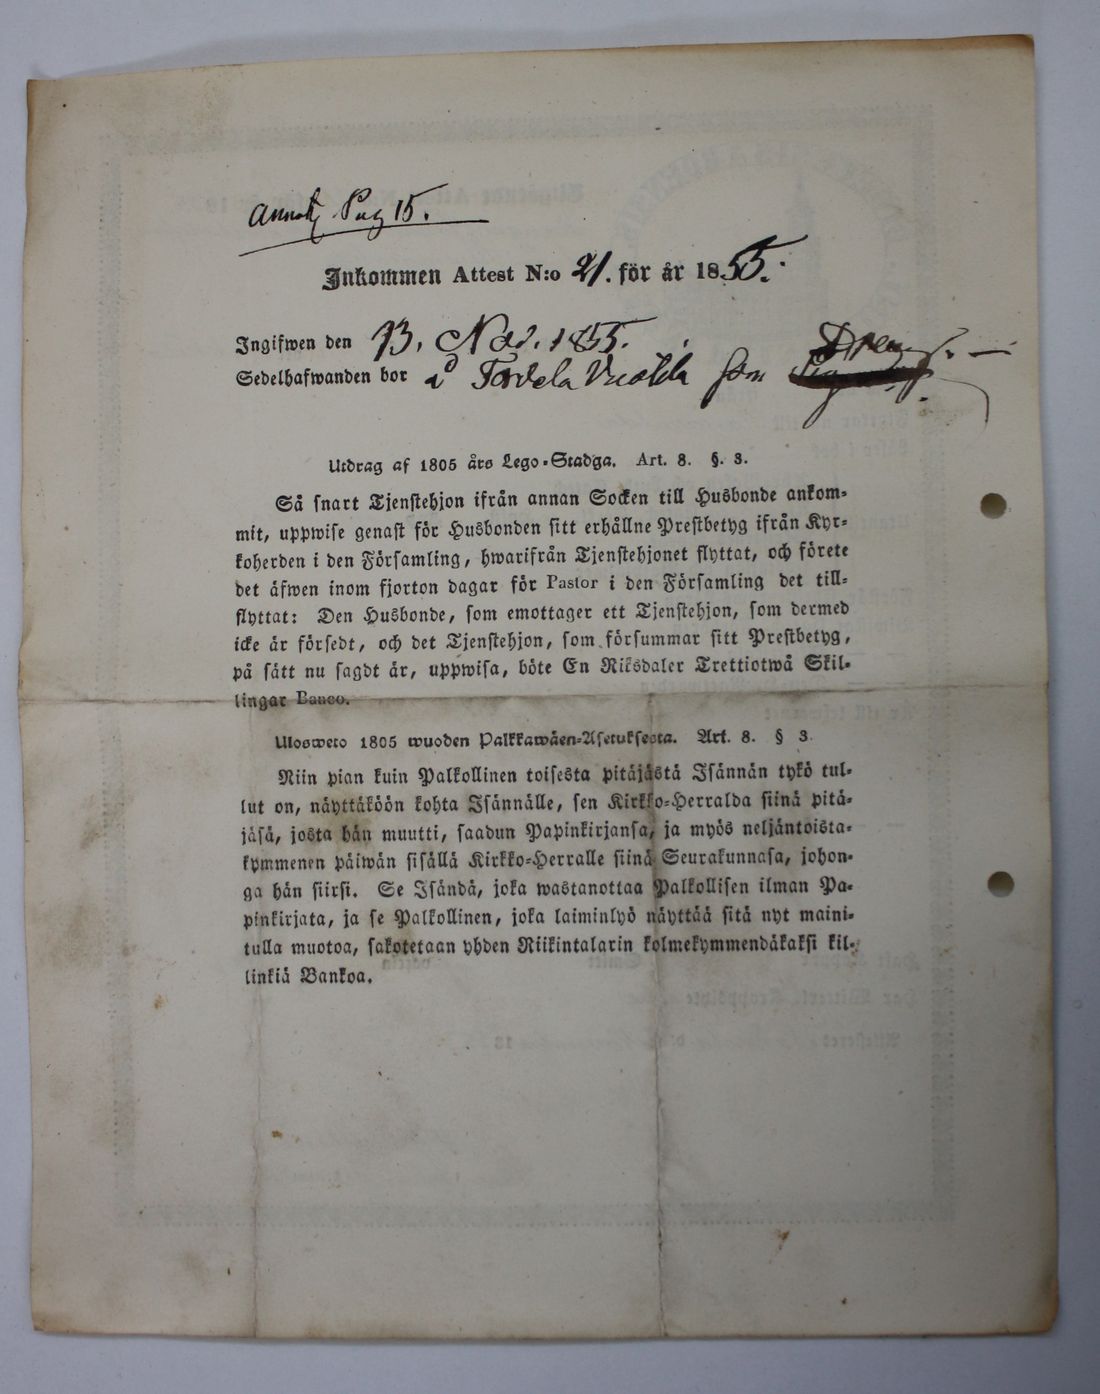 Pag 15.
Inkommen Attest N:o 21. för år 1855.
Ingifwen den 13. Nov. 1855.
Sedelhafwanden bor å som Dreng.
Utdrag af 1805 års Lego-Stadga. Art. 8. §. 3.
Så snart Tjenstehjon ifrån annan Socken till Husbonde ankom-
mit, uppwise genast för Husbonden sitt erhållne Prestbetyg ifrån Kyr-
koherden i den Församling, hwarifrån Tjenstehjonet flyttat, och förete
det äfwen inom fjorton dagar för Pastor i den Församling det till-
flyttat: Den Husbonde, som emottager ett Tjenstehjon, som dermed
icke är försedt, och det Tjenstehjon, som försummar sitt Prestbetyg,
på sätt nu sagdt är, uppwisa, böte En Riksdaler Trettiotwå Skil-
lingar Banco.
Ulosweto 1805 wuoden Palkkawäen-Asetuksesta. Art. 8. § 3
Niin pian kuin Palkollinen toisesta pitäjästä Isännän tykö tul-
lut on, näyttäköön kohta Isännälle, sen Kirkko-Herralda siinä pitä-
jäsä, josta hän muutti, saadun Papinkirjansa, ja myös neljäntoista-
kymmenen päiwän sisällä Kirkko-Herralle siinä Seurakunnasa, johon-
ga hän siirsi. Se Isändä, joka wastanottaa Palkollisen ilman Pa-
pinkirjata, ja se Palkollinen, joka laiminlyö näyttää sitä nyt maini-
tulla muotoa, sakotetaan yhden Riikintalarin kolmekymmendäkaksi kil-
linkiä Bankoa.